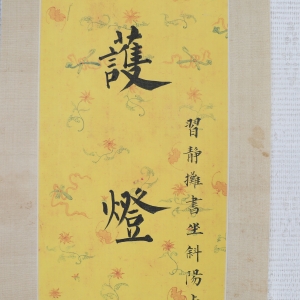 習靜攤書坐斜陽
護燈